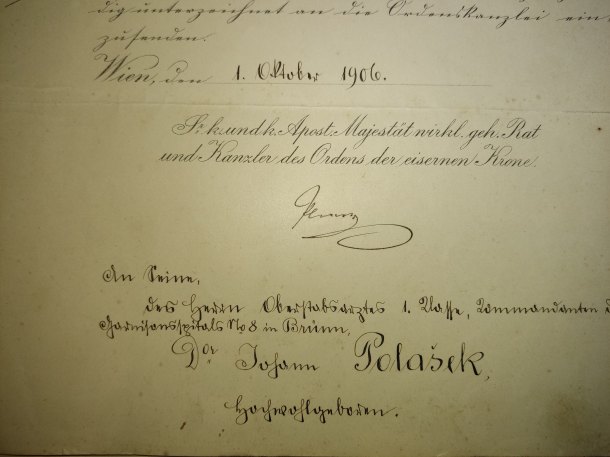 dig unterzeichnet an die Ordenskanzlei ein
zusenden.
Wien, den 1. Oktober 1906.
Sr. k. und k. Apost. Majestät wirkl. geh. Rat
und Kanzler des Ordens der eisernen Krone.
An Seine,
des Herrn Oberstabsarztes 1. Klasse, Kommandanten d
Garnisonsspitals No 8 in Brünn,
Dor Johann Polašek,
Hochwohlgeboren.